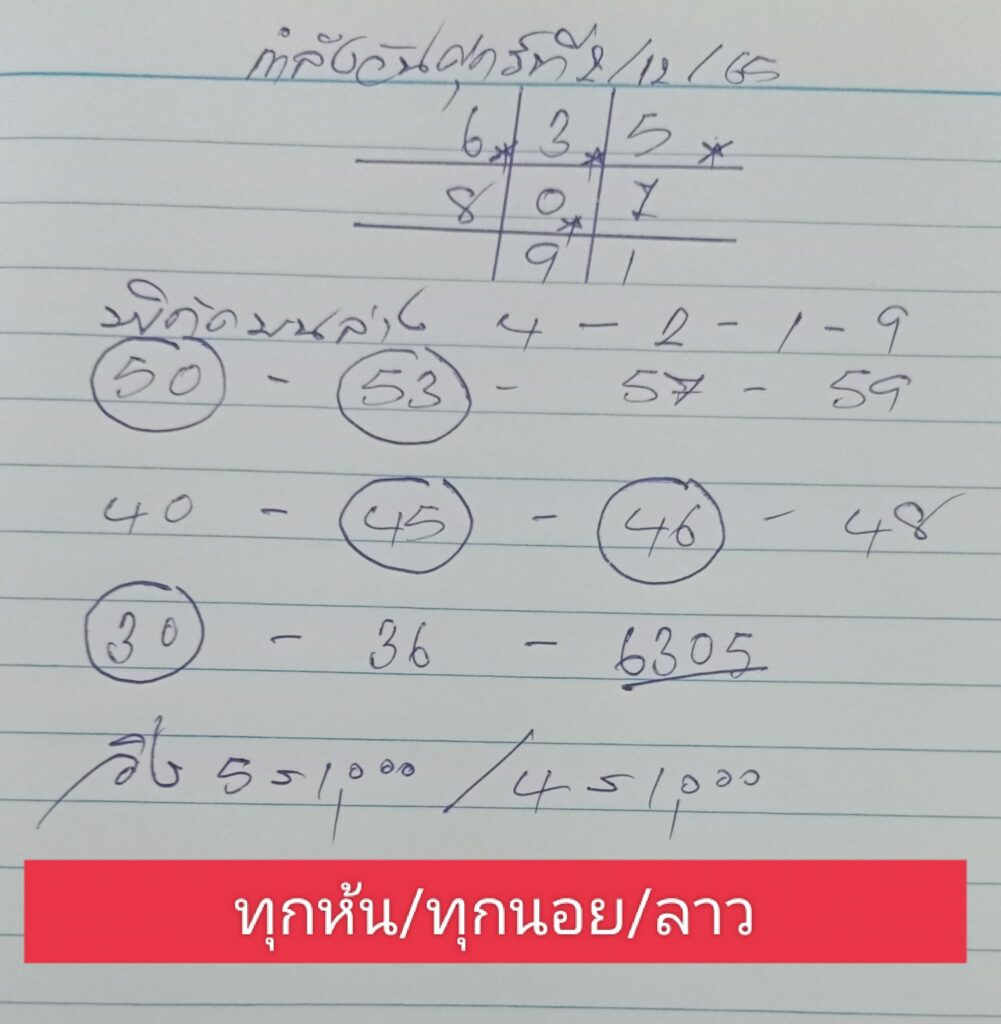 กำลังวันศุกร์ที่ 2/12/65
6 * 3 * 5 *
8 0 * 7
9 1
พิกัดบนล่าง 4 - 2 - 1 - 9
50 - 53 - 57 - 59
40 - 45 - 46 - 48
30 - 36 - 6305
วิ่ง 5 = 1,000 / 4 = 1,000
ทุกห้น/ทุกนอย/ลาว